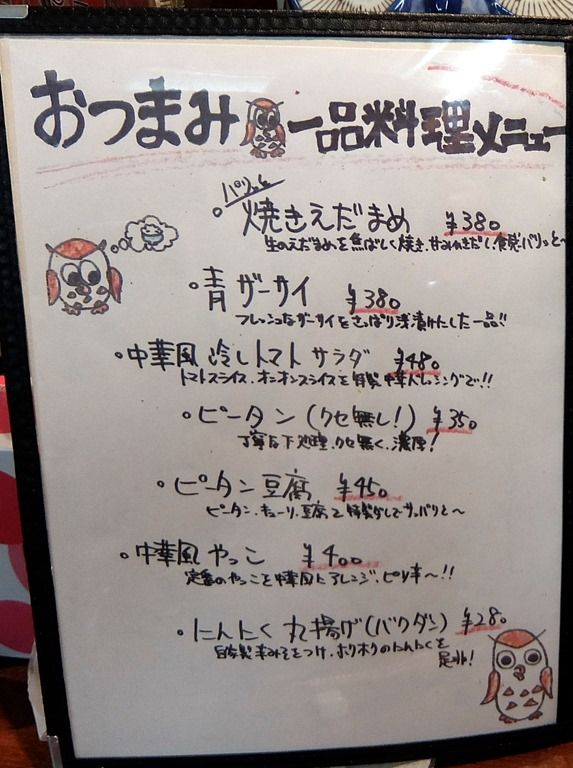 おつまみ 一品料理メニュー
パリッと
・焼きえだまめ ¥380
生のえだまめを焦ばしく焼き、甘みをだし、食感パリッと〜
・青ザーサイ ¥380
フレッシュなザーサイをさっぱり浅漬けにした一品!!
・中華風 冷しトマトサラダ ¥480
トマトスライス、オニオンスライスを自製中華ドレッシングで!!
・ピータン(クセ無し!) ¥350
丁寧な下処理、クセ無く、濃厚!
・ピータン豆腐 ¥450
ピータン、キューリ、豆腐を特製ダレでサッパリと〜
・中華風やっこ ¥400
定番のやっこを中華風にアレンジ、ピリ辛〜!!
・にんにく丸揚げ(バクダン) ¥280
自家製辛みそをつけ、ホクホクのにんにくを
是非!